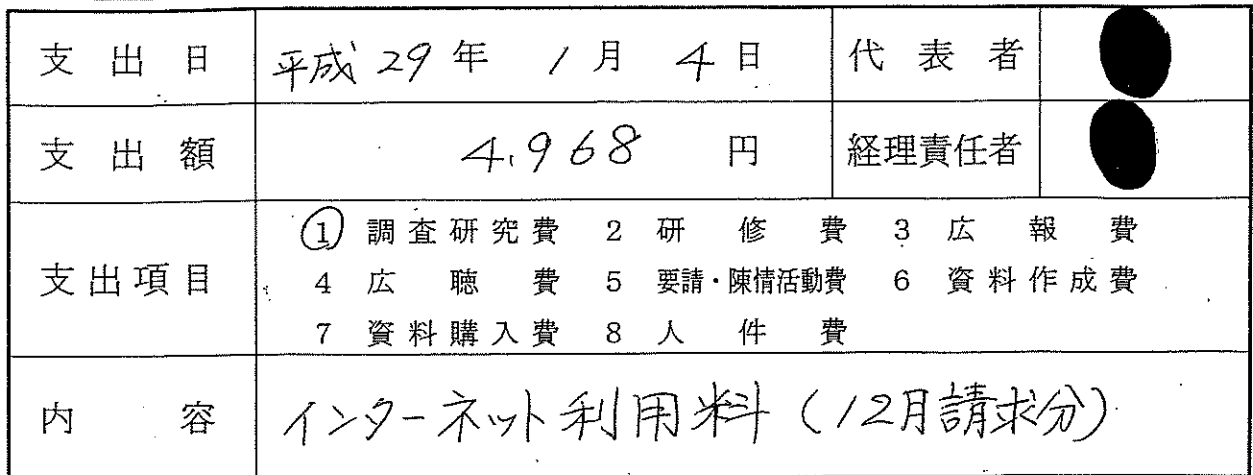 支出日 平成29年1月4日 代表者
支出額 4,968円 経理責任者
支出項目 ① 調査研究費 2 研修費 3 広報費
4 広聴費 5 要請・陳情活動費 6 資料作成費
7 資料購入費 8 人件費
内容 インターネット利用料(12月請求分)